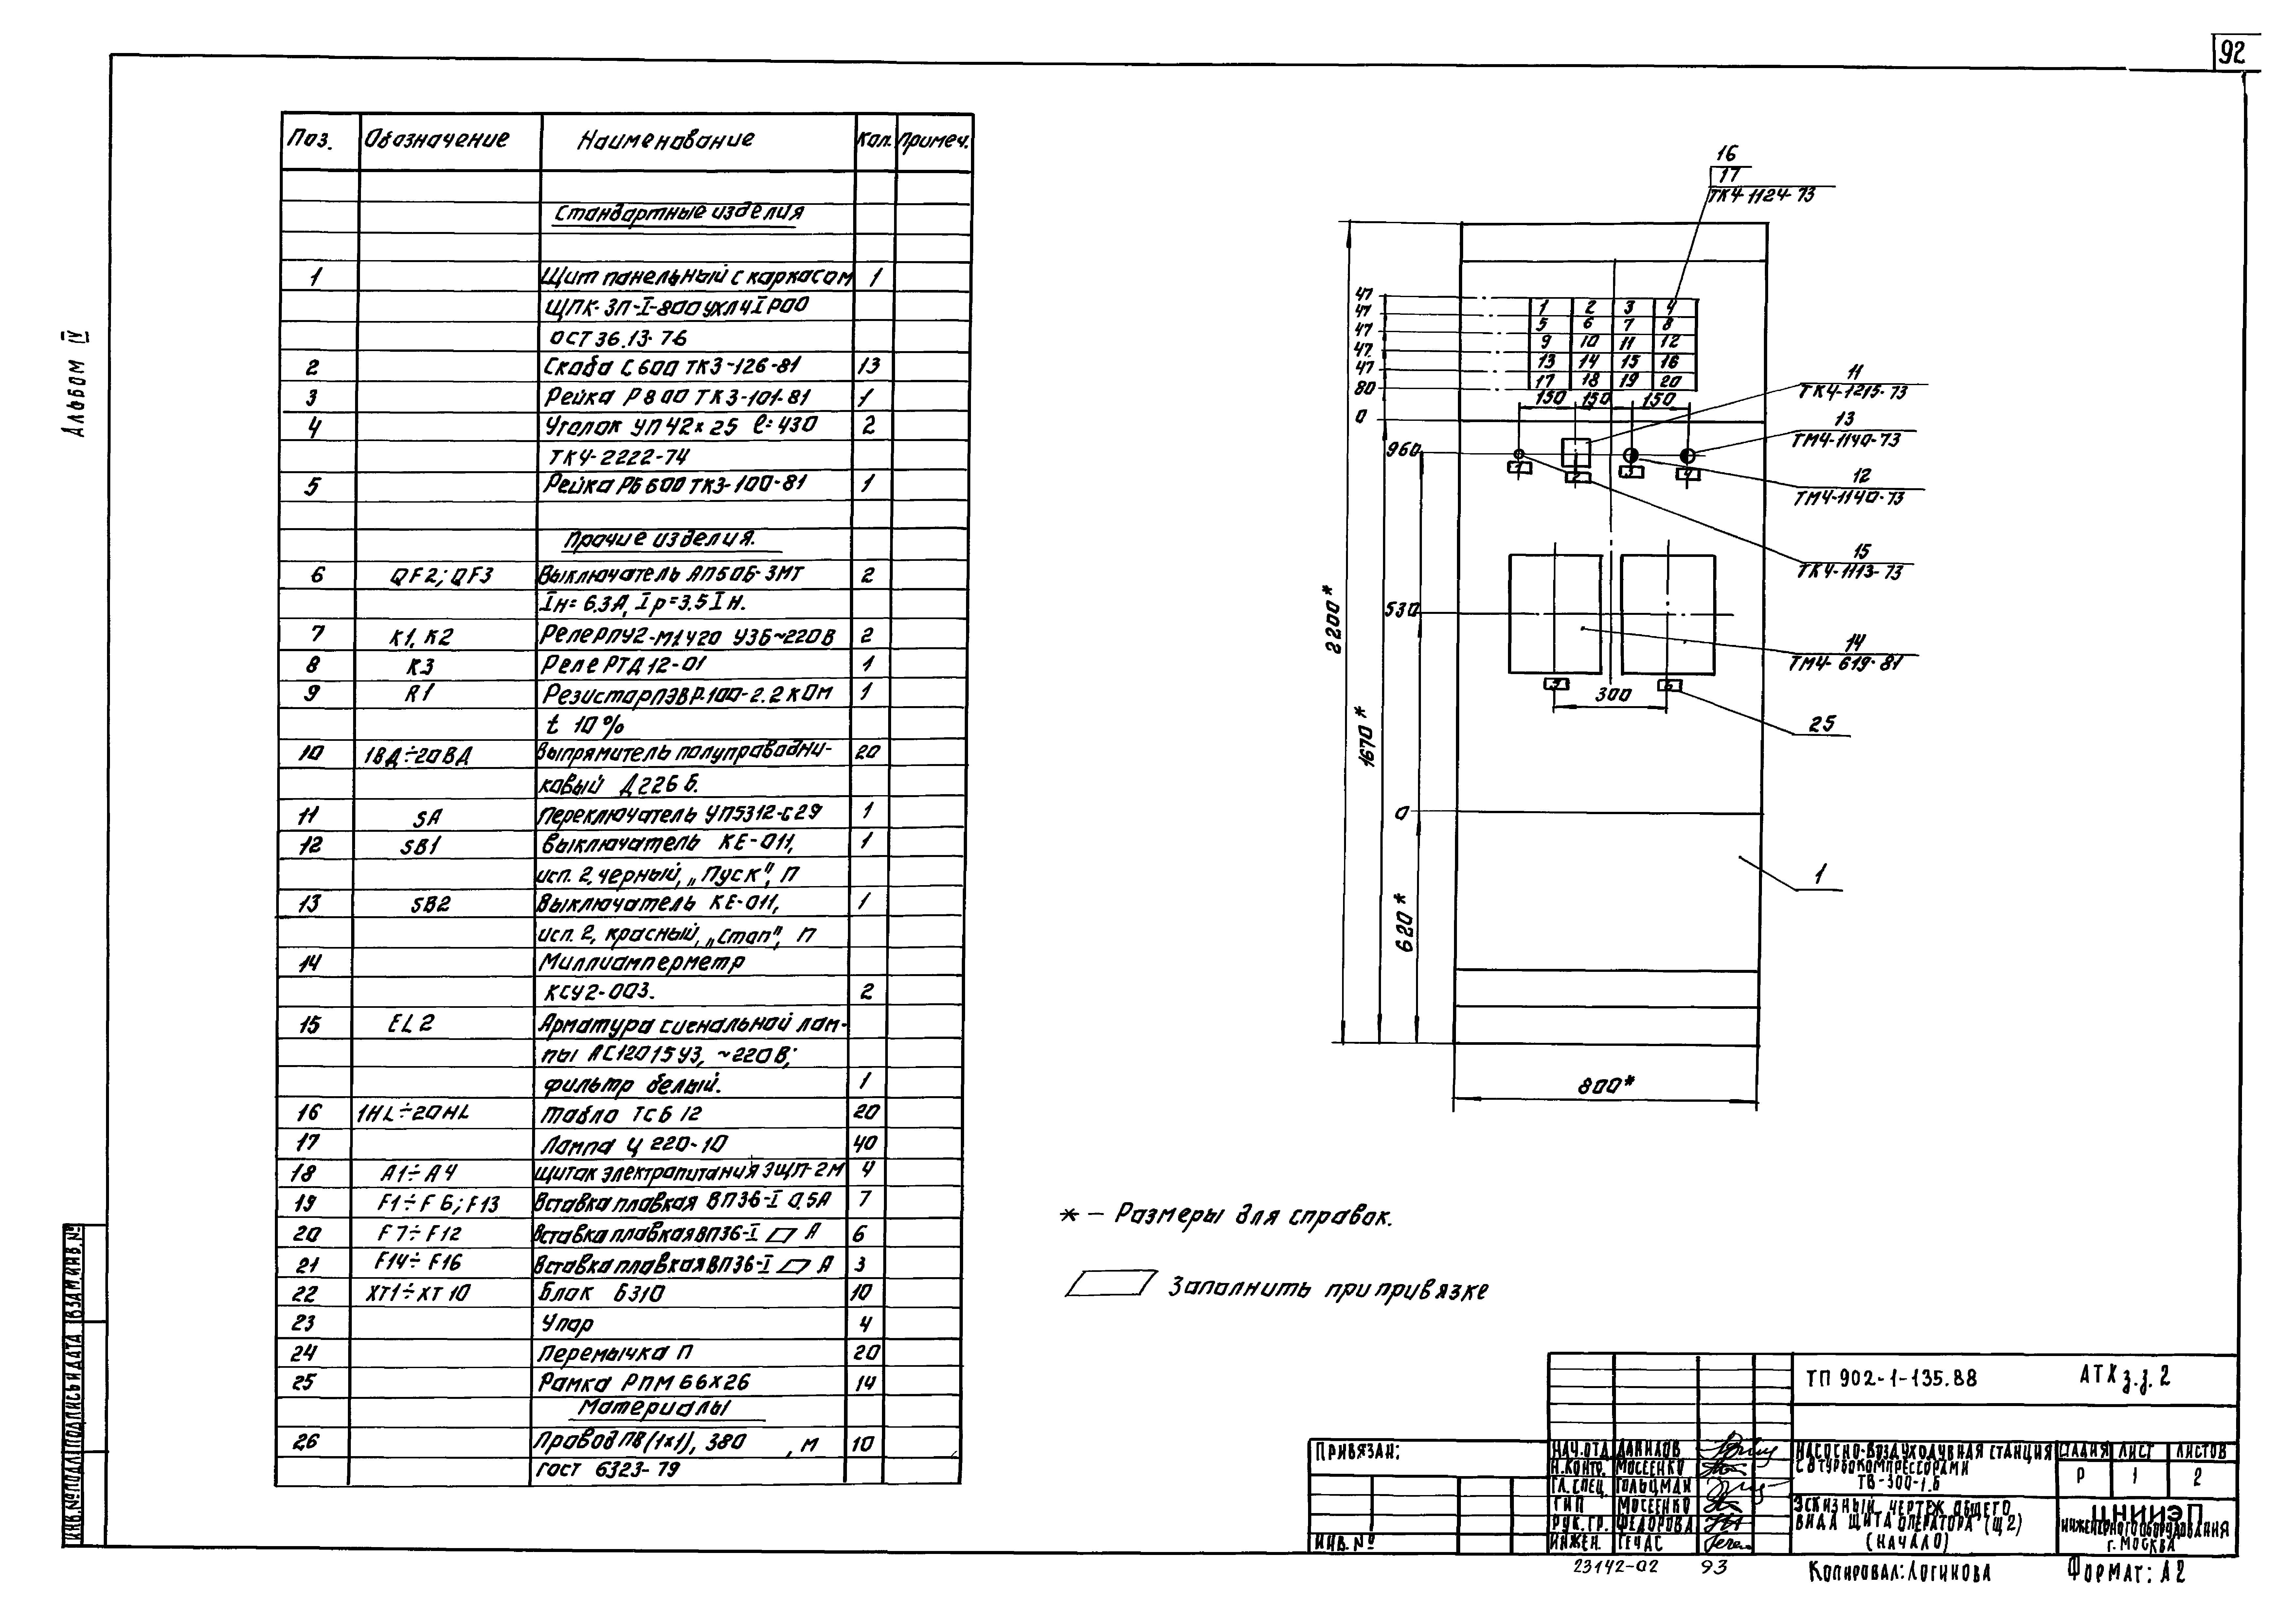 92
Альбом IV
Поз. Обозначение Наименование Кол. Примеч.
Стандартные изделия
1 Щит панельный с каркасом 1
ЩПК-ЗП-I-800 УХЛ4 IP00
ОСТ 36.13-76
2 Скоба С600 ТК3-126-81 13
3 Рейка Р800 ТК3-101-81 1
4 Уголок УП 42х25 ℓ=430 2
ТК4-2222-74
5 Рейка РБ600 ТК3-100-81 1
Прочие изделия.
6 QF2; QF3 Выключатель АП50Б-3МТ 2
Iн=6.3А, Iр=3.5Iн.
7 К1, К2 Реле РПУ2-М1420 У3Б ~220В 2
8 К3 Реле РТД12-01 1
9 R1 Резистор ПЭВР-100-2.2кОм 1
± 10%
10 1ВД÷20ВД Выпрямитель полупроводни- 20
ковый Д226Б.
11 SA Переключатель УП5312-С29 1
12 SB1 Выключатель КЕ-011, 1
исп. 2, черный, „Пуск", П
13 SB2 Выключатель КЕ-011, 1
исп. 2, красный, „Стоп", П
14 Миллиамперметр
КСУ2-003. 2
15 EL2 Арматура сигнальной лам-
пы АС12015У3, ~220В;
фильтр белый. 1
16 1HL÷20HL Табло ТСБ 12 20
17 Лампа Ц 220-10 40
18 А1÷А4 Щиток электропитания ЭЩП-2М 4
19 F1÷F6; F13 Вставка плавкая ВП36-I 0,5А 7
20 F7÷F12 Вставка плавкая ВП36-I А 6
21 F14÷F16 Вставка плавкая ВП36-I А 3
22 ХТ1÷ХТ10 Блок Б310 10
23 Упор 4
24 Перемычка П 20
25 Рамка РПМ 66х26 14
Материалы
26 Провод ПВ(1х1), 380 , м 10
ГОСТ 6323-79
16
17
ТК4-1124-73
47
47
47
47
47
80
0
1 2 3 4
5 6 7 8
9 10 11 12
13 14 15 16
17 18 19 20
150 150 150
11
ТК4-1215-73
13
ТМ4-1140-73
12
ТМ4-1140-73
15
ТК4-1113-73
14
ТМ4-619-81
25
1
960
530
0
1 2 3 4
5 6
300
2200*
1670*
620*
800*
* – Размеры для справок.
Заполнить при привязке
ТП 902-1-135.88 АТХ з.з.2
Привязан:
Инв. №
Нач. отд. Данилов
Н. контр. Мосеенко
Гл. спец. Гольцман
ГИП Мосеенко
Рук. гр. Федорова
Инжен. Гечас
Насосно-воздуходувная станция
с 8 турбокомпрессорами
ТВ-300-1.6
Стадия Лист Листов
Р 1 2
Эскизный чертеж общего
вида щита оператора (Щ2)
(начало)
ЦНИИЭП
инженерного оборудования
г. Москва
23142-02 93
Копировал: Логинова Формат: А2
Инв. № подл. Подпись и дата Взам. инв. №